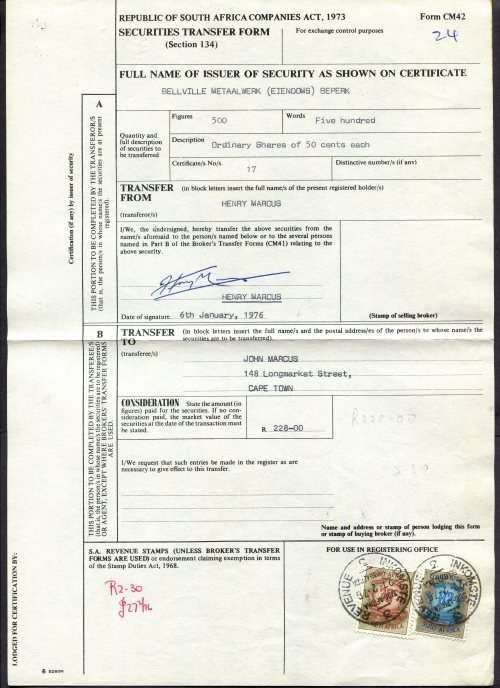 REPUBLIC OF SOUTH AFRICA COMPANIES ACT, 1973
Form CM42
SECURITIES TRANSFER FORM
(Section 134)
For exchange control purposes
24
FULL NAME OF ISSUER OF SECURITY AS SHOWN ON CERTIFICATE
BELLVILLE METAALWERK (EIENDOMS) BEPERK
Certification (if any) by issuer of security
A
THIS PORTION TO BE COMPLETED BY THE TRANSFEROR/S
(that is, the person/s in whose name/s the securities are at present
registered).
Quantity and
full description
of securities to
be transferred
Figures
500
Words
Five hundred
Description
Ordinary Shares of 50 cents each
Certificate/s No/s
17
Distinctive number/s (if any)
TRANSFER
FROM
(in block letters insert the full name/s of the present registered holder/s)
HENRY MARCUS
(transferor/s)
I/We, the undersigned, hereby transfer the above securities from the
name/s aforesaid to the person/s named below or to the several persons
named in Part B of the Broker's Transfer Forms (CM41) relating to the
above security.
HENRY MARCUS
Date of signature 6th January, 1976
(Stamp of selling broker)
B
THIS PORTION TO BE COMPLETED BY THE TRANSFEREE/S
(that is, the person/s in whose name/s the securities are to be registered)
OR AGENT, EXCEPT WHERE BROKERS' TRANSFER FORMS
ARE USED.
TRANSFER
TO
(in block letters insert the full name/s and the postal address/es of the person/s to whose name/s the
securities are to be transferred).
(transferee/s)
JOHN MARCUS
148 Longmarket Street,
CAPE TOWN
CONSIDERATION State the amount (in
figures) paid for the securities. If no con-
sideration paid, the market value of the
securities at the date of the transaction must
be stated.
R 228-00
R228-00
I/We request that such entries be made in the register as are
necessary to give effect to this transfer.
Name and address or stamp of person lodging this form
or stamp of buying broker (if any).
LODGED FOR CERTIFICATION BY:
S.A. REVENUE STAMPS (UNLESS BROKER'S TRANSFER
FORMS ARE USED) or endorsement claiming exemption in terms
of the Stamp Duties Act, 1968.
FOR USE IN REGISTERING OFFICE
R2-30
REVENUE
INKOMSTE